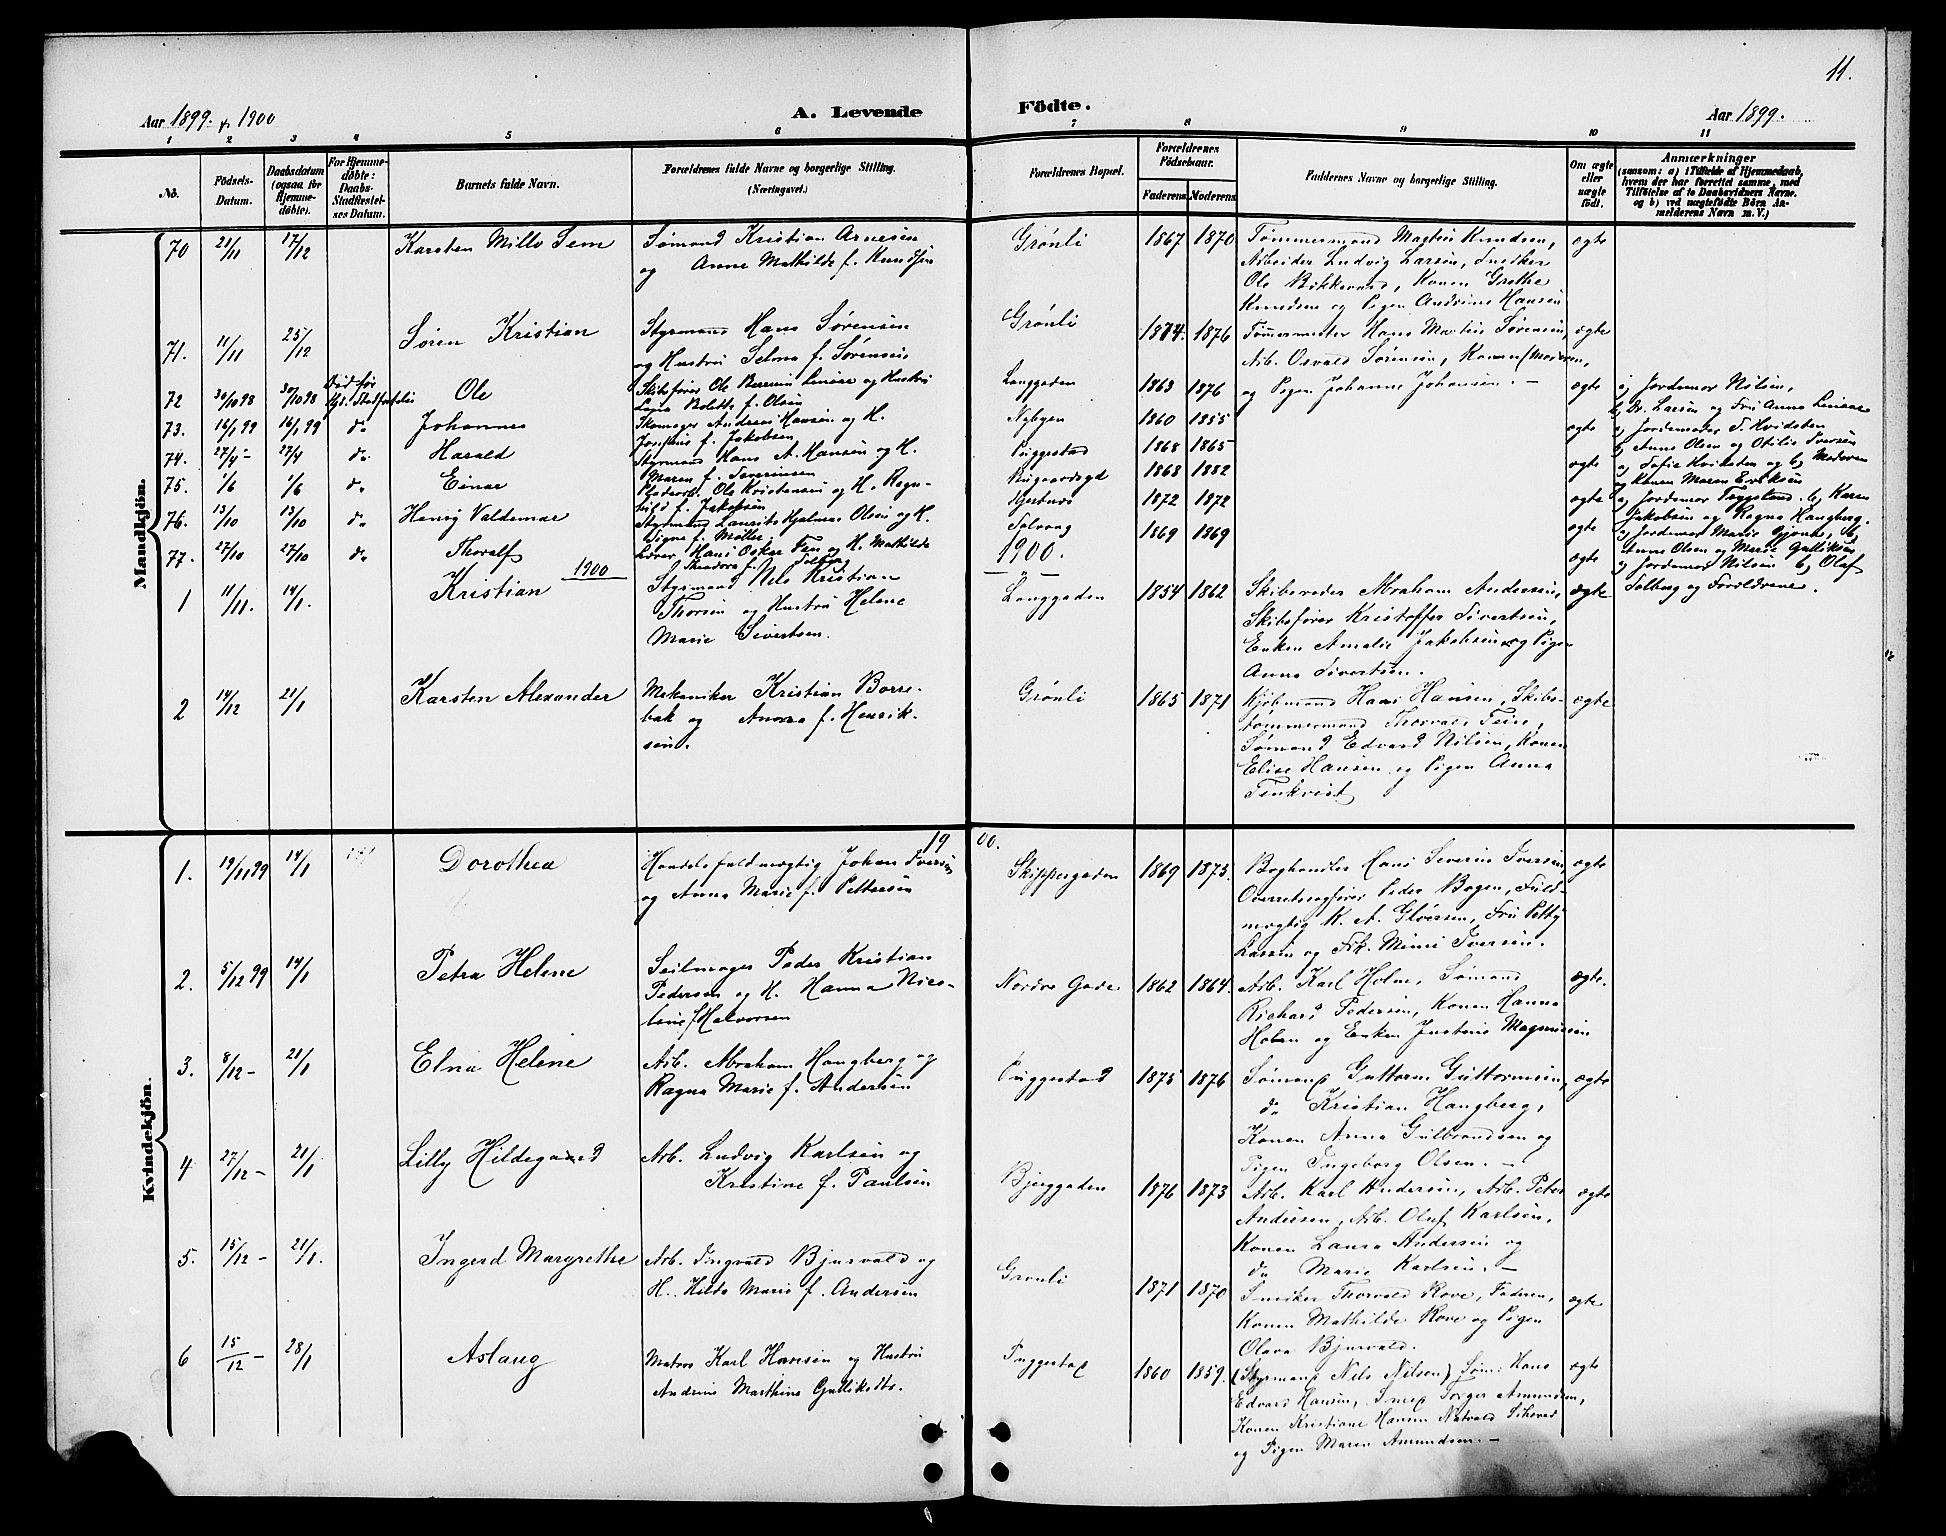 11.
Aar 1899 & 1900
A. Levende Födte.
Aar 1899.
1 2 3 4 5 6 7 8 9 10 11
No. Födsels-Datum. Daabsdatum (ogsaa for Hjemmedøbte). For Hjemmedøbte: Daabs-Stadfæstelses Datum. Barnets fulde Navn. Forældrenes fulde Navne og borgerlige Stilling. (Næringsvei.) Forældrenes Bopæl. Forældrenes Födselsaar. Faderens. Moderens. Faddernes Navne og borgerlige Stilling. Om ægte eller uægte født. Anmærkninger (saasom: a) i Tilfælde af Hjemmedaab, hvem der har forrettet samme, med Tilføielse af to Daabsvidners Navne. og b) ved uægtefødte Börn Anmelderens Navn m. V.)
Mandkjön.
70 21/11 17/12 Karsten Millo Sem Sømand Kristian Arnesen Grønli 1867 1870 Tømmermand Magnus Knudsen, ægte
og Anne Mathilde f. Knudsen Arbeider Ludvig Larsen, Snedker
Ole Bökkevard, Konen Grethe
Knudsen og Pigen Andrine Hansen
71. 11/11 25/12 Søren Kristian Styrmand Hans Sørensen Grønli 1874. 1876 Tømmermester Hans Mathis Sørensen, ægte
og Hustru Selma f. Sørensen Arb. Osvald Sørensen, Konen (Moderen,
72 30/10 98 30/10 98 Død før Ole Skibsfører Ole Linaae og Hustru Langgaden 1863 1876 og Pigen Johanne Johansen. – ægte a) Jordemor Nilsen,
f. Olsen b) Dr. Larsen og Fru Anna Linaae
73. 16/1 99 16/1 99 do Johannes Skomager Andreas Hansen og H. Nybyen 1860 1855 ægte a) Jordemoder T. Hvidsten
Josephine f. Jakobsen b) Anne Olsen og Otilie Iversen
74. 27/4 – 27/4 do. Harald Styrmand Hans A. Hansen og H. Puggestad 1868 1865 ægte a) Sofie Hvidsten og b) Moderen
Maren f. Severinsen og Konen Maren Eriksen
75. 1/6 1/6 do Einar Ole Kristensen og H. Ragnhild f. Jakobsen 1868 1882 ægte a) Jordemor Trygstad. b) Karen
Jakobsen og Ragna Haugberg.
76. 13/10 13/10 do Henry Valdemar Styrmand Laurits Hjalmar Olsen og H. 1872 1872 ægte a) Jordemor Marie Gjone, b)
Signe f. Møller. Anne Olsen og Marie Gulliksen
77. 27/10 27/10 do Thoralf Lærer Hans Oskar Fen og H. Mathilde Solvang 1869 1869 ægte a) Jordemor Nilsen b) Olaf
Theodora f. Solberg Solberg og Forældrene.
1900 1900.
1 11/11. 14/1. Kristian Styrmand Nils Kristian Langgaden 1854 1862 Skibsreder Abraham Andersen, ægte
Thorsen og Hustru Helene Skibsfører Kristoffer Sivertsen,
Marie Sivertsen. Enken Amalie Jakobsen og Pigen
Anna Sivertsen.
2 14/12 21/1 Karsten Alexander Mekaniker Kristian Borre- Grønli 1865 1871 Kjøbmand Hans Hansen, Skibs- ægte
bak og Anna f. Henrik- tømmermand Thorvald Feir,
sen. Sømand Edvard Nilsen, Konen
Elise Hansen og Pigen Anna
Tenkvist
Kvindekjön.
1900.
1. 19/11 99 14/1 Dorothea Handelsfuldmægtig Johan Iversen Skippergaden 1869 1875. Boghandler Hans Severin Iversen, ægte
og Anna Marie f. Pettersen Overretssagfører Peder Bogen, Fuld-
mægtig K. A. Gløersen, Fru Petty
Larsen og Frk. Mimi Iversen.
2. 5/12 99 14/1 Petra Helene Seilmager Peder Kristian Nordre Gade 1862 1864. Arb. Karl Holm, Sømand ægte.
Pedersen og H. Hanna Nico- Richard Pedersen, Konen Hanna
line f Halvorsen Holm og Enken Justine Magnussen
3. 8/12 – 21/1 Elna Helene Arb. Abraham Haugberg og Puggestad 1875 1876 Sømand Guttorm Guttormsen, ægte
Ragna Marie f. Andersen do Kristian Haugberg,
Konen Anna Gulbrandsen og
Pigen Ingeborg Olsen. –
4 27/12 – 21/1 Lilly Hildegard Arb. Ludvig Karlsen og Bjerggaden 1876 1873 Arb. Karl Andersen, Arb. Peter ægte
Kristine f. Paulsen Andersen, Arb. Oluf Karlsen,
Konen Laura Andersen og
do Marie Karlsen. –
5. 15/12 – 21/1. Ingerd Margrethe Arb. Ingvald Bjurvald og Grønli 1871 1870 Snedker Thorvald Rove, Faderen, ægte
H. Hilda Marie f. Andersen Konen Mathilde Rove og Pigen
Olava Bjurvald.
6 15/12 – 28/1 Aslaug Matros Karl Hansen og Hustru Puggestad 1860 1859. (Styrmand Nils Nilsen) Søm: Hans ægte
Andrine Marthine Gulliksdtr. Edvard Hansen, Smed Amundsen,
Konen Kristiane Hansen
og Pigen Maren Amundsen. –